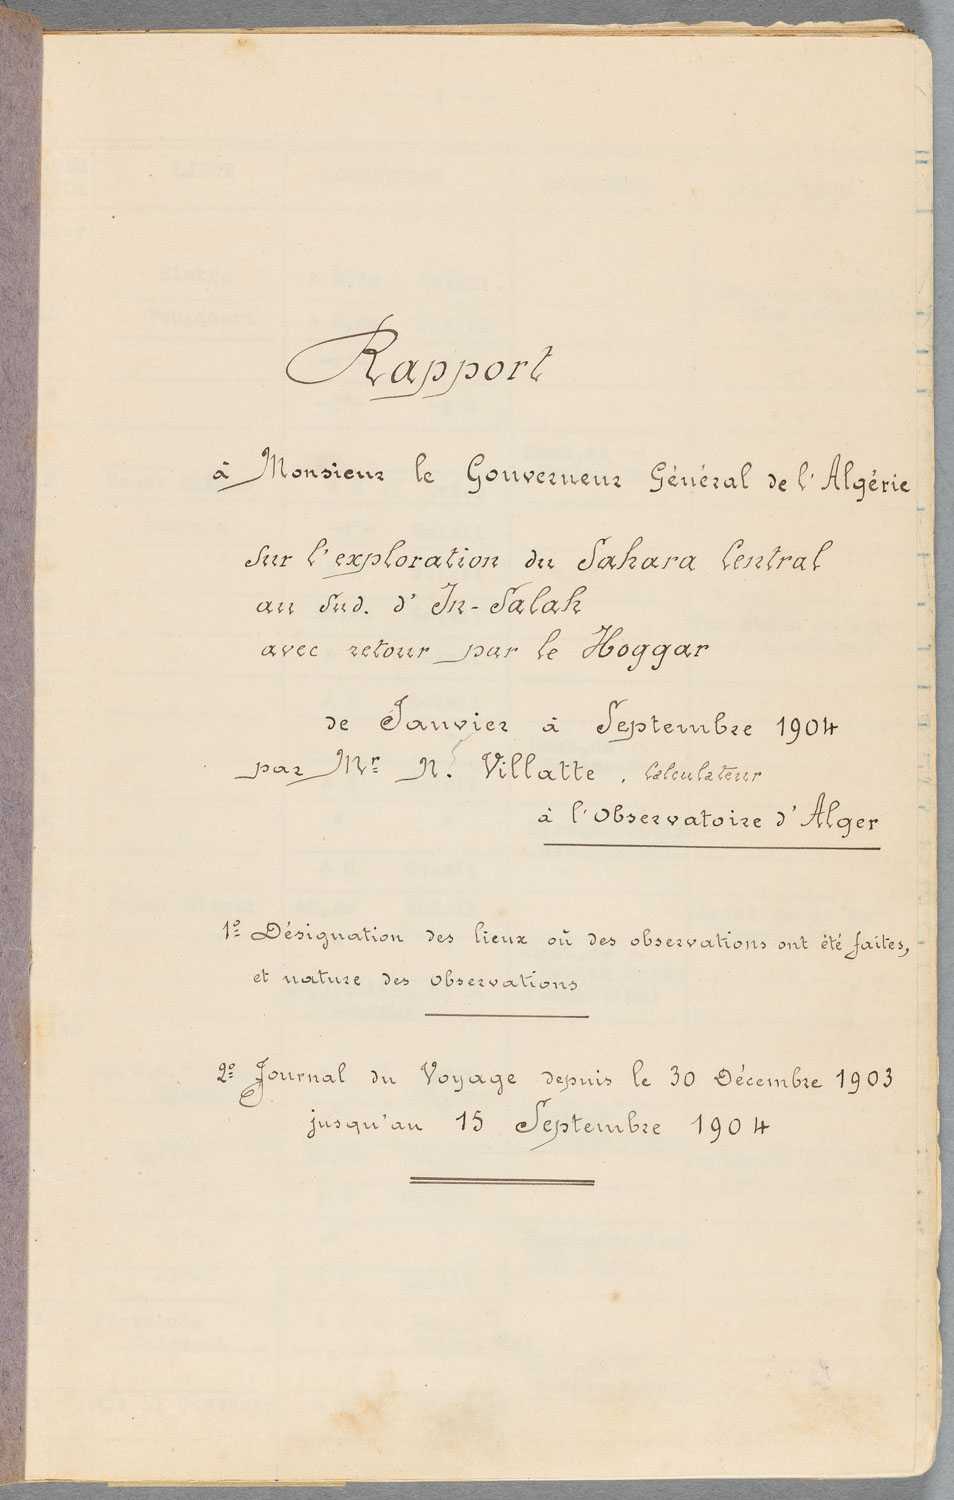 Rapport
à Monsieur le Gouverneur Général de l'Algérie
Sur l'exploration du Sahara Central
au Sud. d'In-Salah
avec retour par le Hoggar
de Janvier à Septembre 1904
par Mr N. Villatte, Calculateur
à l'Observatoire d'Alger
1º Désignation des lieux où des observations ont été faites,
et nature des observations
2º Journal du Voyage depuis le 30 Décembre 1903
jusqu'au 15 Septembre 1904